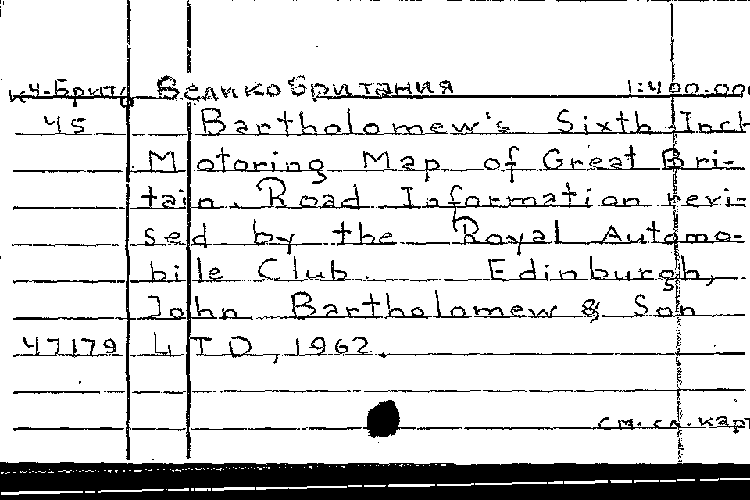 К4-Брит. Великобритания 1:400.000
45 Bartholomew's Sixth Inch
Motoring Map of Great Bri-
tain. Road Information revi-
sed by the Royal Automo-
bile Club. Edinburgh,
John Bartholomew & Son
47179 LTD, 1962.
см. сл. карт